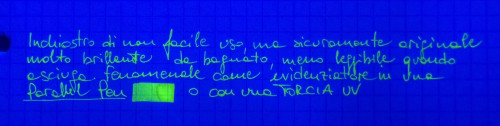 Inchiostro di non facile uso, ma sicuramente originale
molto brillante da bagnato, meno leggibile quando
asciuga, fenomenale come evidenziatore in una
parallel pen o con una TORCIA UV